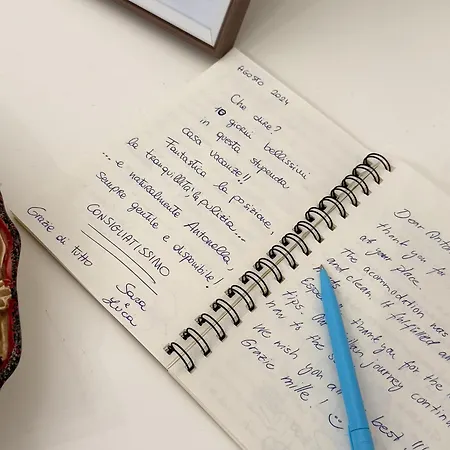 AGOSTO 2024
Che dire?
10 giorni bellissimi
in questa stupenda
casa vacanze!!
Fantastica la posizione,
la tranquillità, la pulizia...
... e naturalmente Antonella,
sempre gentile e disponibile!
CONSIGLIATISSIMO
Grazie di tutto
Sara
e
Luca
Dear
Thank you for
at your place.
The acommodation was
and clean. It fulfilled
Thank you for the
tips. journey
how to the
We wish you all best!!!
Grazie mille! :)